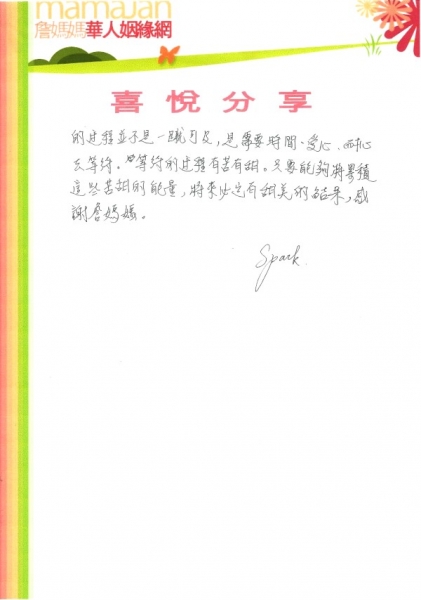 mamaJan
詹媽媽華人姻緣網
喜悅分享
的过程並不是一蹴可及，是需要時間、愛心、耐心
去等待。等待的过程有苦有甜。只要能夠將累積
這些苦甜的能量，將來必定有甜美的結果，感
謝詹媽媽。
Spark.